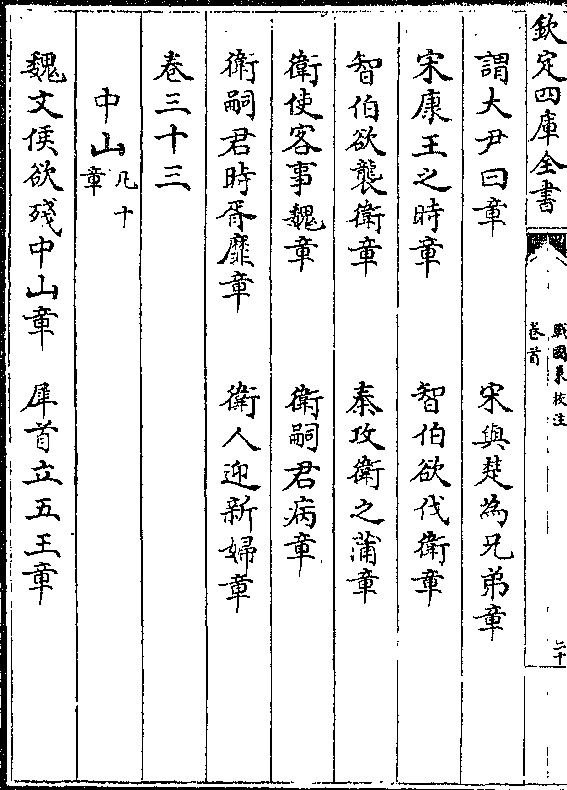 欽定四庫全書
戰國策校注
卷首
二十
謂大尹曰章 宋與楚為兄弟章
宋康王之時章 智伯欲伐衛章
智伯欲襲衛章 秦攻衛之蒲章
衛使客事魏章 衛嗣君病章
衛嗣君時胥靡章 衛人迎新婦章
卷三十三
中山凡十章
魏文侯欲殘中山章 犀首立五王章